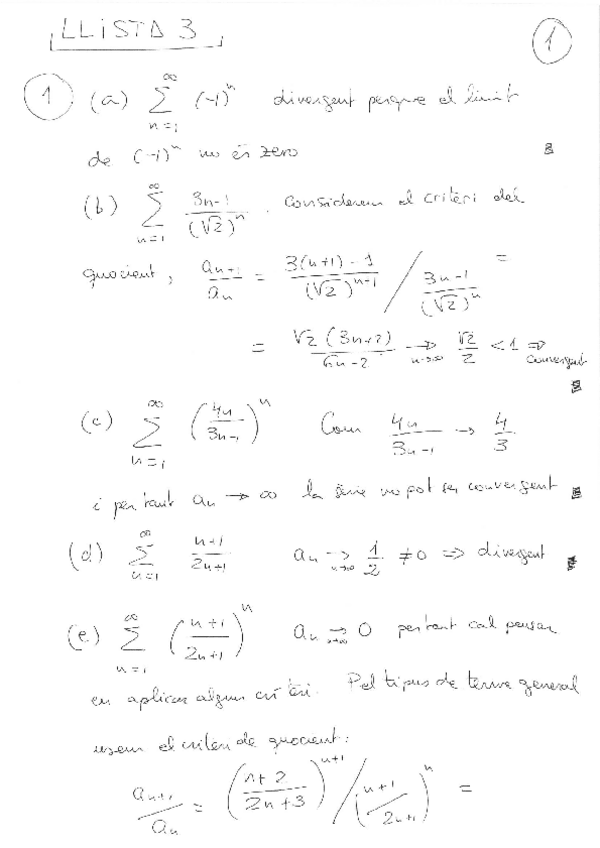 LLISTA 3
1
1 (a) ∑_{n=1}^{∞} (-1)^n divergent perque el limit
de (-1)^n no és zero
(b) ∑_{n=1}^{∞} (3n-1)/(√2)^n . Considerem el critèri del
quocient, a_{n+1}/a_n = (3(n+1)-1)/(√2)^{n+1} / (3n-1)/(√2)^n =
= √2(3n+2)/(6n-2) →_{n→∞} √2/2 < 1 ⇒ convergent
(c) ∑_{n=1}^{∞} (4n/(3n-1))^n Com 4n/(3n-1) → 4/3
i per tant a_n → ∞ la sèrie no pot ser convergent
(d) ∑_{n=1}^{∞} (n+1)/(2n+1) a_n →_{n→∞} 1/2 ≠ 0 ⇒ divergent
(e) ∑_{n=1}^{∞} ((n+1)/(2n+1))^n a_n →_{n→∞} 0 per tant cal pensar
en aplicar algun critèri. Pel tipus de terme general
usem el critèri de quocient:
a_{n+1}/a_n = ((n+2)/(2n+3))^{n+1} / ((n+1)/(2n+1))^n =